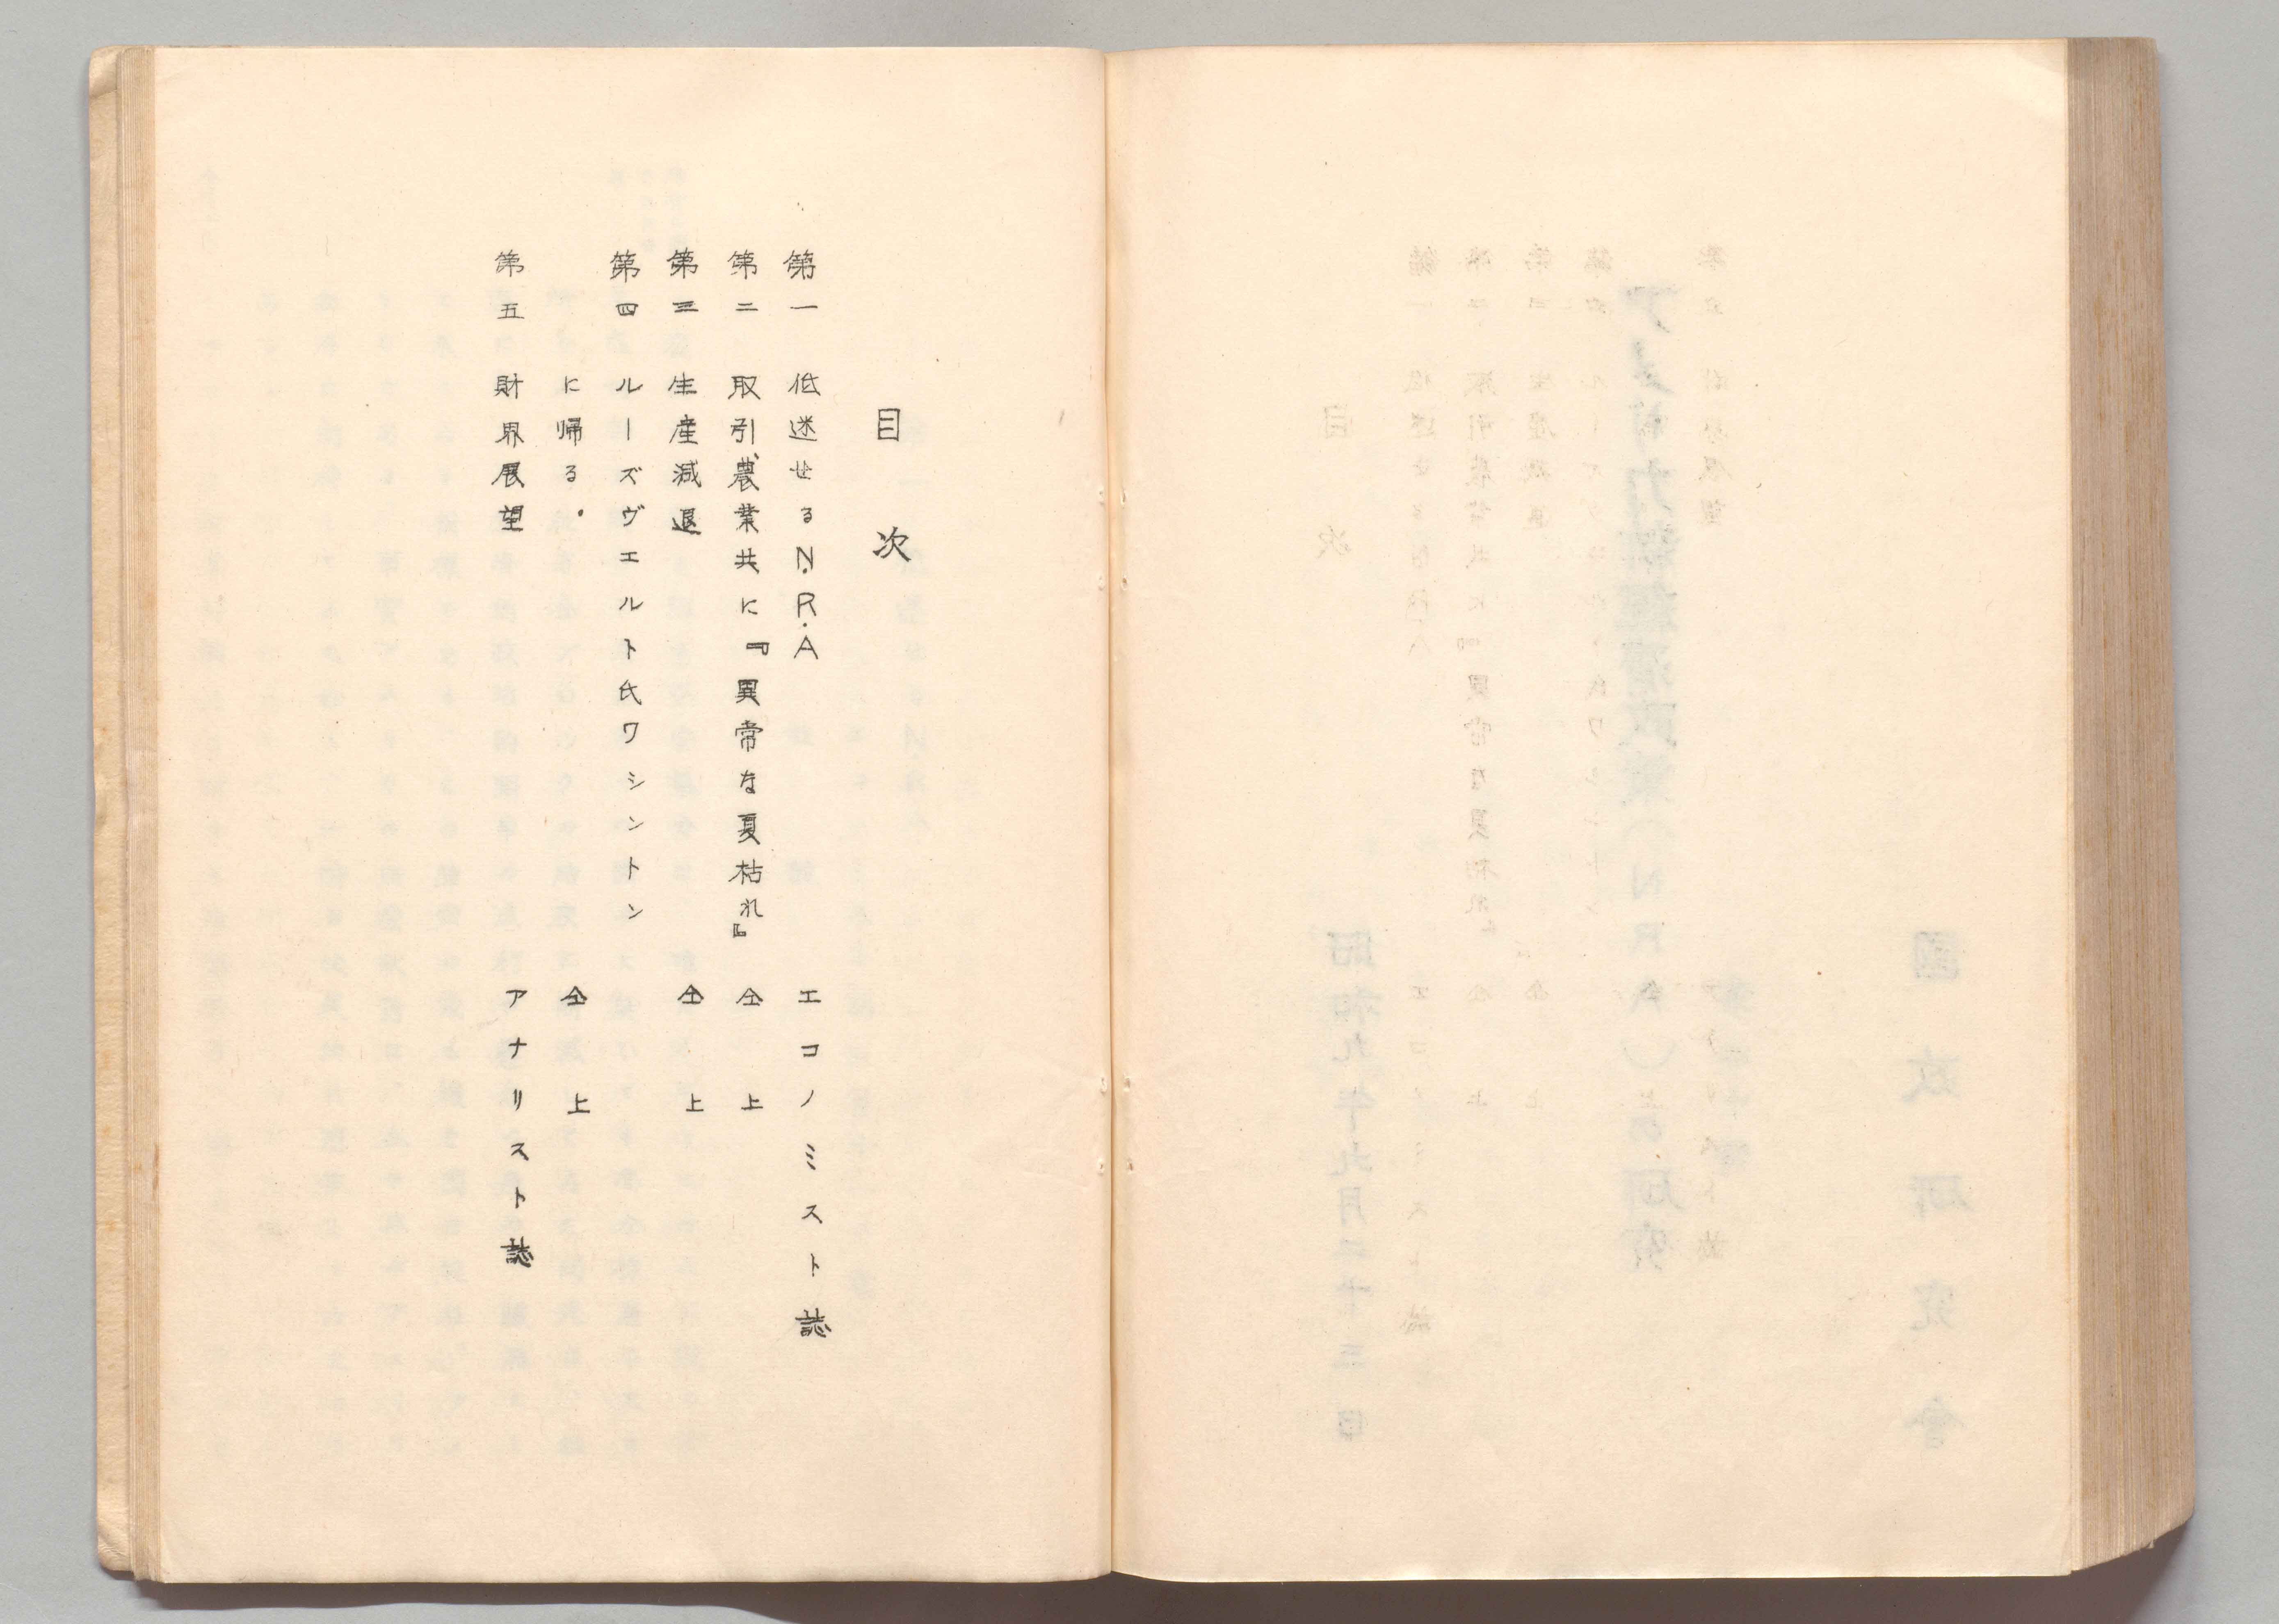 目次
第一 低迷せるN.R.A エコノミスト誌
第二 取引、農業共に『異常な夏枯れ』 仝上
第三 生産減退 仝上
第四 ルーズヴエルト氏ワシントン
に帰る。 仝上
第五 財界展望 アナリスト誌